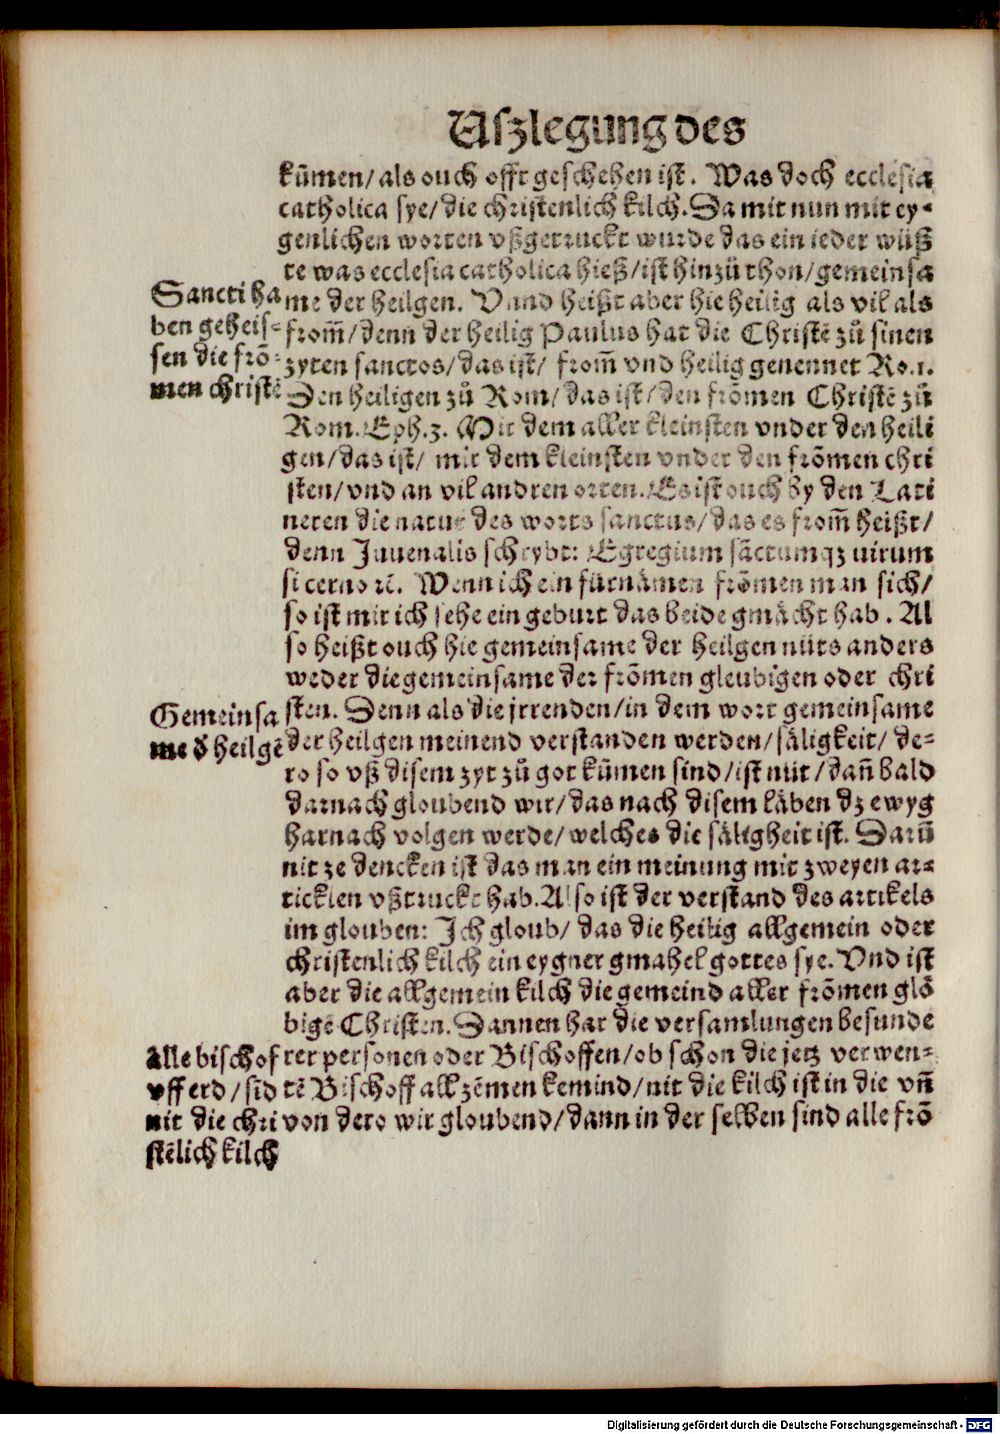 Uszlegung des
kūmen/als ouch offt geschehen ist. Was doch ecclesia
catholica sye/die christenlich kilch. Da mit nun mit ey-
genlichen worten vßgetruckt wurde das ein ieder wüß
te was ecclesia catholica hieß/ist hinzů thon/gemeinsa
me der heilgen. Vnnd heißt aber hie heilig als vil als
from̄/denn der heilig Paulus hat die Christē zů sinen
zyten sanctos/das ist/ from̄ vnd heilig genennet Ro.1.
Den heiligen zů Rom/das ist/den frōmen Christē zů
Rom. Eph.3. Mir dem aller kleinsten vnder den heili
gen/das ist/ mir dem kleinsten vnder den frōmen chri
sten/vnd an vil andren orten. Es ist ouch by den Lati
neren die natur des worts sanctus/das es from̄ heißt/
denn Juuenalis schrybt: Egregium sāctumqz uirum
si cerno ꝛc̄. Wenn ich ein fürnämen frōmen man sich/
so ist mir ich sehe ein geburt das beide gmächt hab. Al
so heißt ouch hie gemeinsame der heilgen nüts anders
weder die gemeinsame der frōmen gleubigen oder chri
sten. Denn als die jrrenden/in dem wort gemeinsame
der heilgen meinend verstanden werden/säligkeit/ de-
ro so vß disem zyt zů got kūmen sind/ist nüt/dañ bald
darnach gloubend wir/das nach disem läben dz ewyg
harnach volgen werde/welches die säligheit ist. Darū
nit ze dencken ist das man ein meinung mit zweyen ar-
ticklen vßtruckt hab. Also ist der verstand des artikels
im glouben: Ich gloub/ das die heilig allgemein oder
christenlich kilch ein eygner gmahel gottes sye. Vnd ist
aber die allgemein kilch die gemeind aller frōmen glö
bige Christen. Dannen har die versamlungen besunde
rer personen oder Bischoffen/ob schon die jetz verwen-
tē Bischoff all zēmen kemind/nit die kilch ist in die vñ
von dero wir gloubend/dann in der selben sind alle frō
Sancti ha
ben geheis-
sen die frō-
men christē
Gemeinsa
me d heilgē
Alle bischof
vff erd/sīd
nit die chri
stēlich kilch
Digitalisierung gefördert durch die Deutsche Forschungsgemeinschaft - DFG